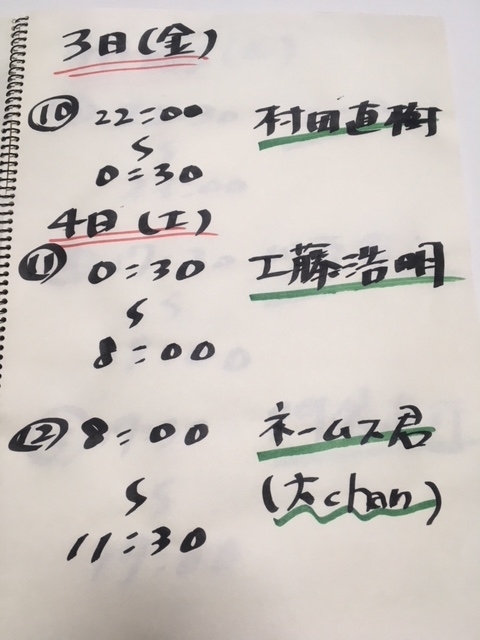 3日(金)
⑩ 22:00 村田直樹
〜
0:30
4日(土)
⑪ 0:30 工藤浩明
〜
8:00
⑫ 8:00 ネームス君
〜 (大chan)
11:30